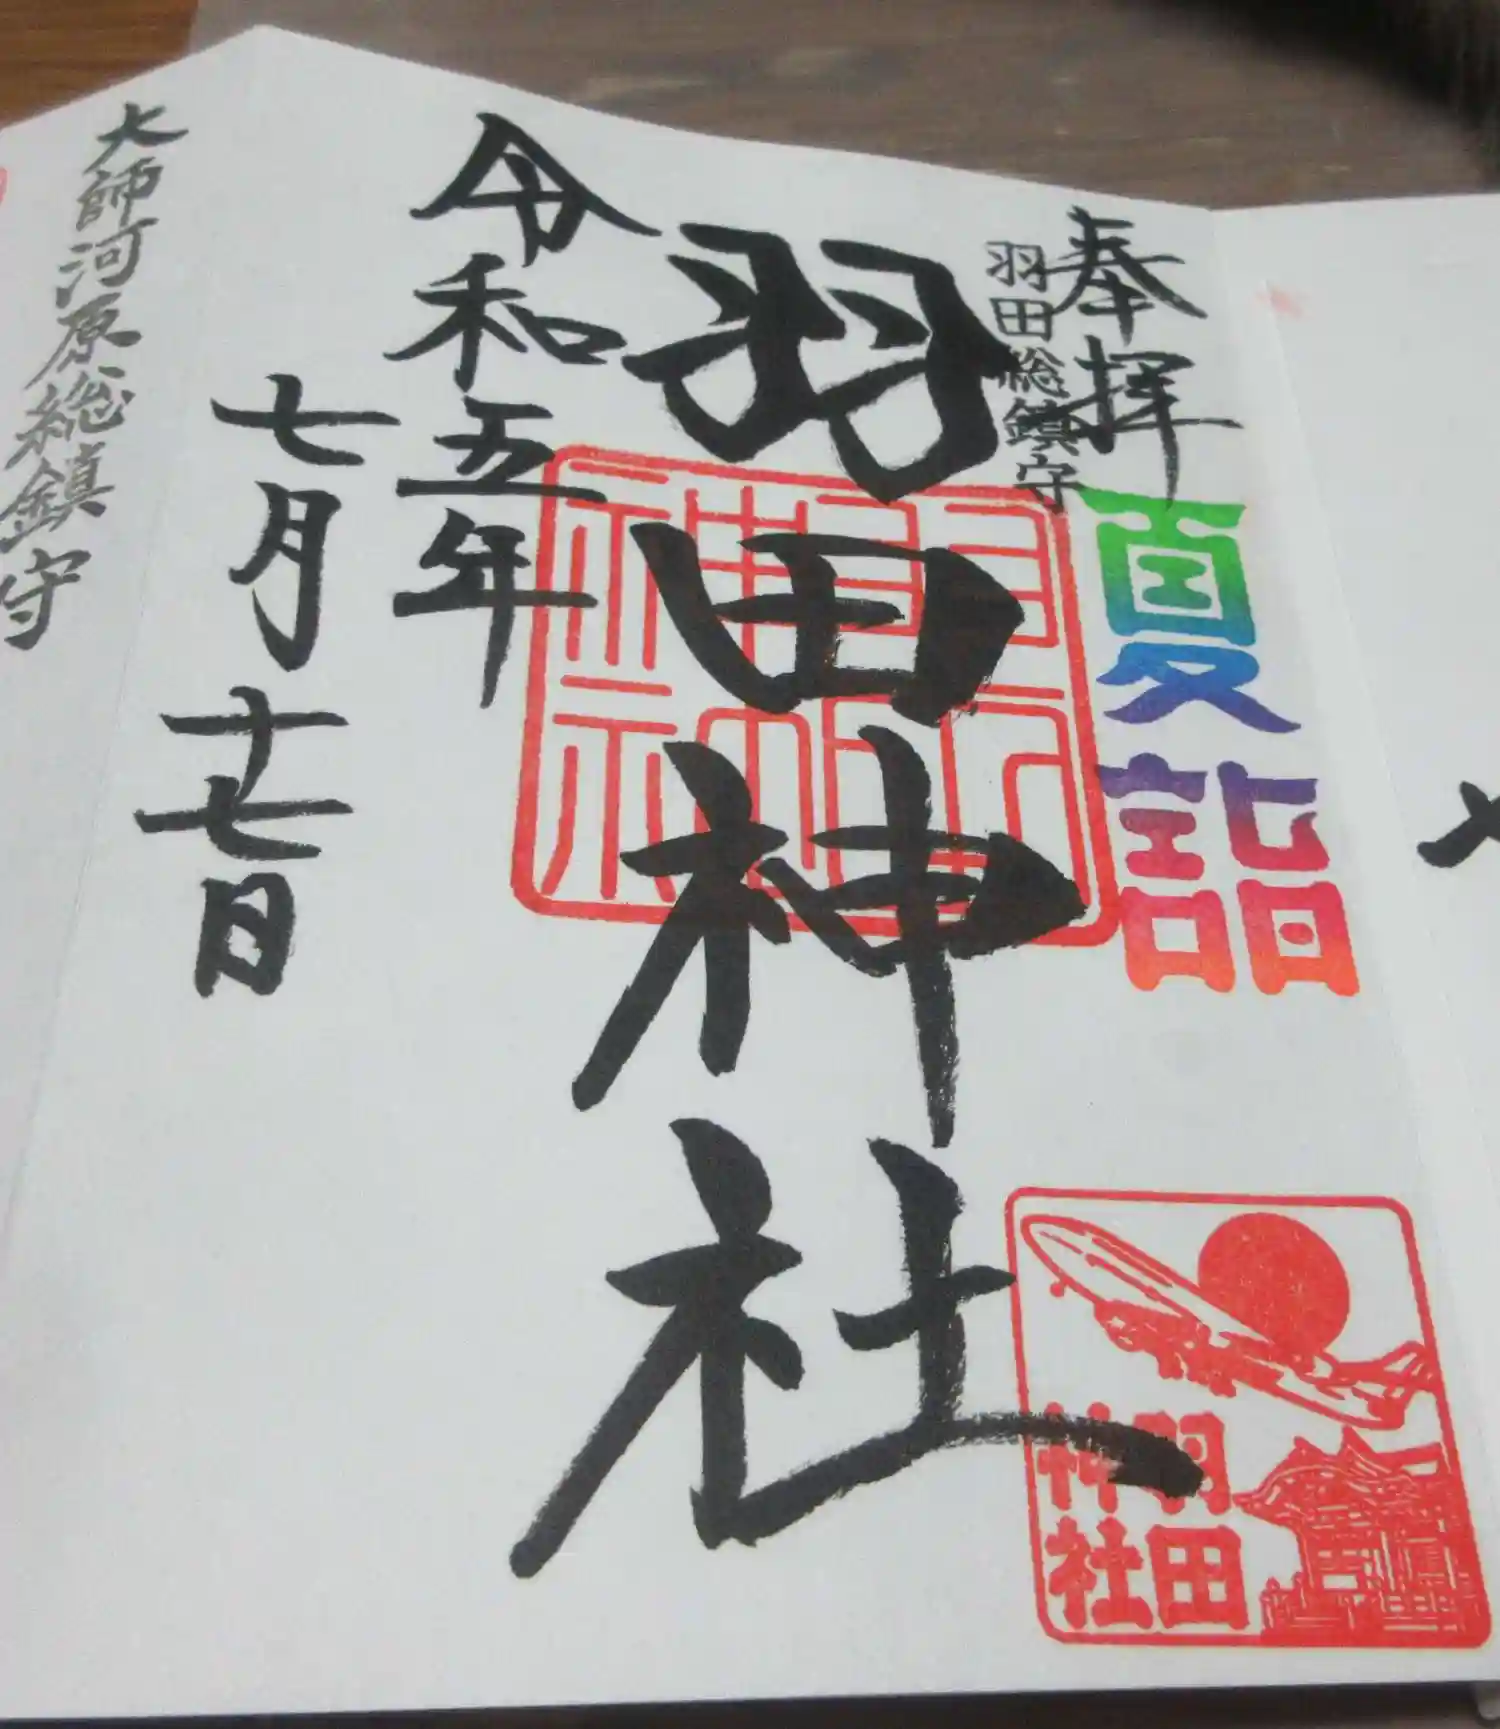 奉拝
羽田総鎮守
夏詣
羽田神社
羽田神社
羽田神社
令和五年
七月十七日
大師河原総鎮守